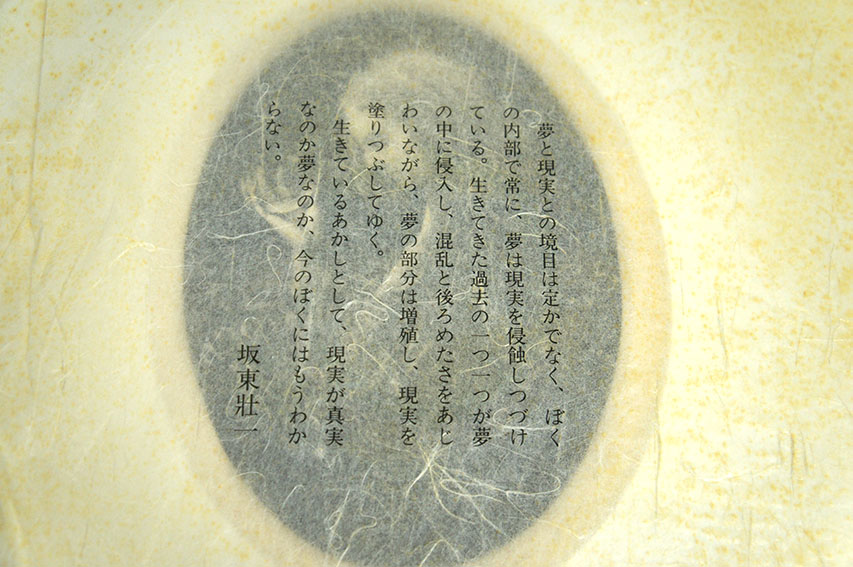 夢と現実との境目は定かでなく、ぼく
の内部で常に、夢は現実を侵蝕しつづけ
ている。生きてきた過去の一つ一つが夢
の中に侵入し、混乱と後ろめたさをあじ
わいながら、夢の部分は増殖し、現実を
塗りつぶしてゆく。
生きているあかしとして、現実が真実
なのか夢なのか、今のぼくにはもうわか
らない。
坂東壯一